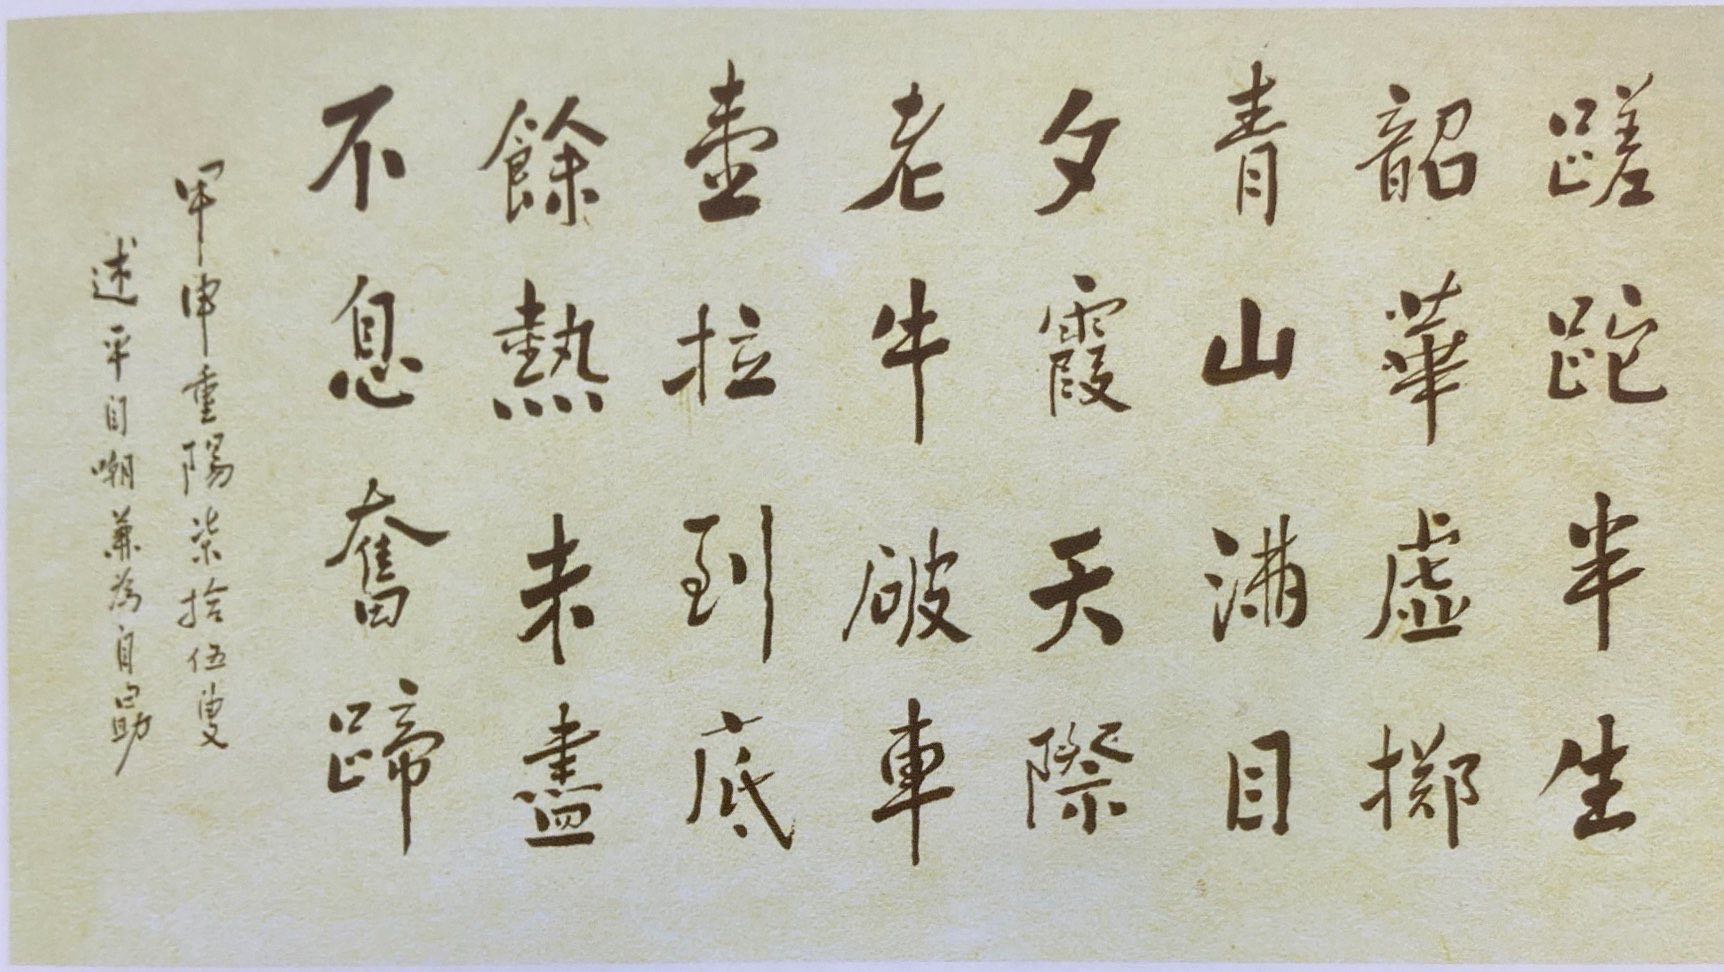 蹉跎半生
韶華虛擲
青山滿目
夕霞天際
老牛破車
壹拉到底
餘熱未盡
不息奮蹄
甲申重陽柒拾伍叟
述平自嘲兼為自勗